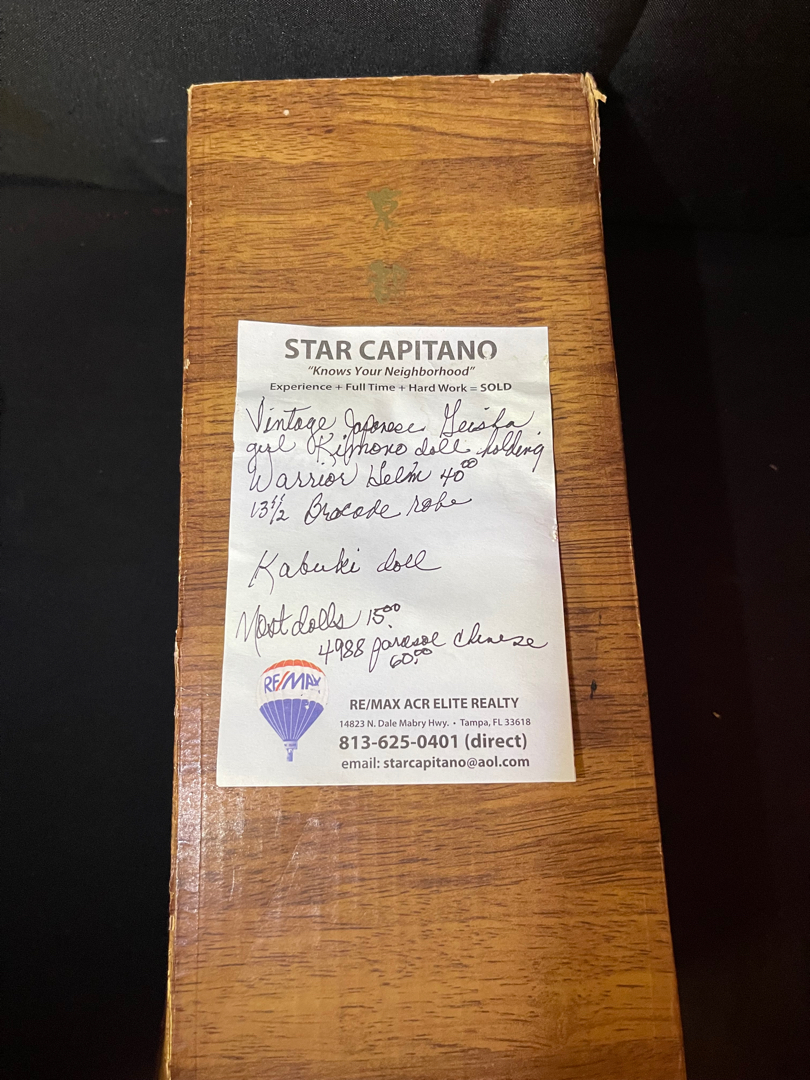 STAR CAPITANO
“Knows Your Neighborhood”
Experience + Full Time + Hard Work = SOLD
Vintage Japanese Geisha
girl Kimono doll holding
Warrior Helm 40⁰⁰
13 1/2 Brocade robe
Kabuki doll
Most dolls 15.⁰⁰
4988 parasol Chinese
60.⁰⁰
RE/MAX
RE/MAX ACR ELITE REALTY
14823 N. Dale Mabry Hwy. • Tampa, FL 33618
813-625-0401 (direct)
email: starcapitano@aol.com